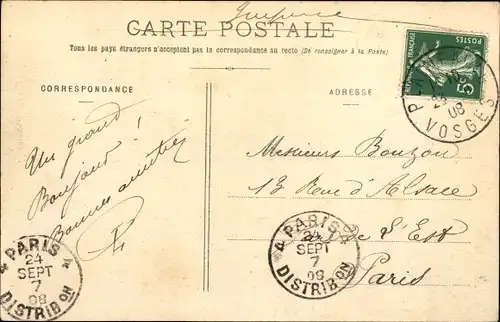 Imprimé
CARTE POSTALE
Tous les pays étrangers n'acceptent pas la correspondance au recto (Se renseigner à la Poste)
CORRESPONDANCE
ADRESSE
POSTES
5c
VOSGES
08
Un grand
Bonjour !
Bonnes amitiés
Messieurs Bouzon
13 Rue d'Alsace
de l'Est
Paris
PARIS
24
SEPT
7
08
DISTRIBON
PARIS
24
SEPT
7
08
DISTRIBON